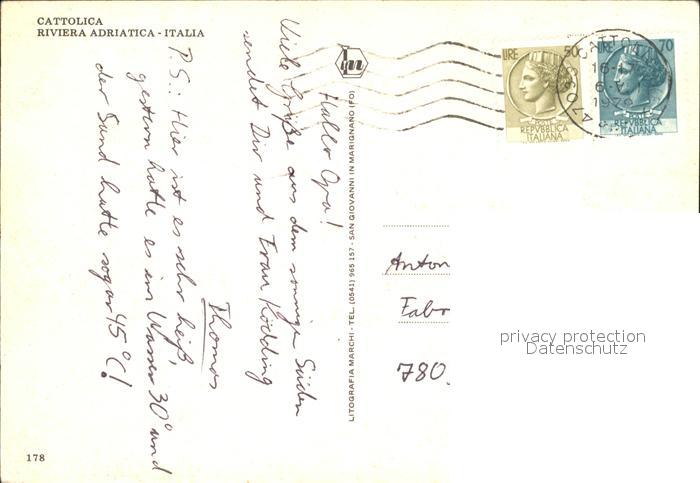 CATTOLICA
RIVIERA ADRIATICA - ITALIA
Hallo Opa!
Viele Grüße aus dem sonnigen Süden
sendet Dir und Frau Ködding
Thomas
P.S.: Hier ist es sehr heiß,
gestern hatte es im Wasser 30° und
der Sand hatte sogar 45°C!
LITOGRAFIA MARCHI - TEL. (0541) 965 157 - SAN GIOVANNI IN MARIGNANO (FO)
LIRE 50
POSTE
REPVBBLICA
ITALIANA
LIRE 70
POSTE
REPVBBLICA
ITALIANA
Anton
Fabr
780.
privacy protection
Datenschutz
178